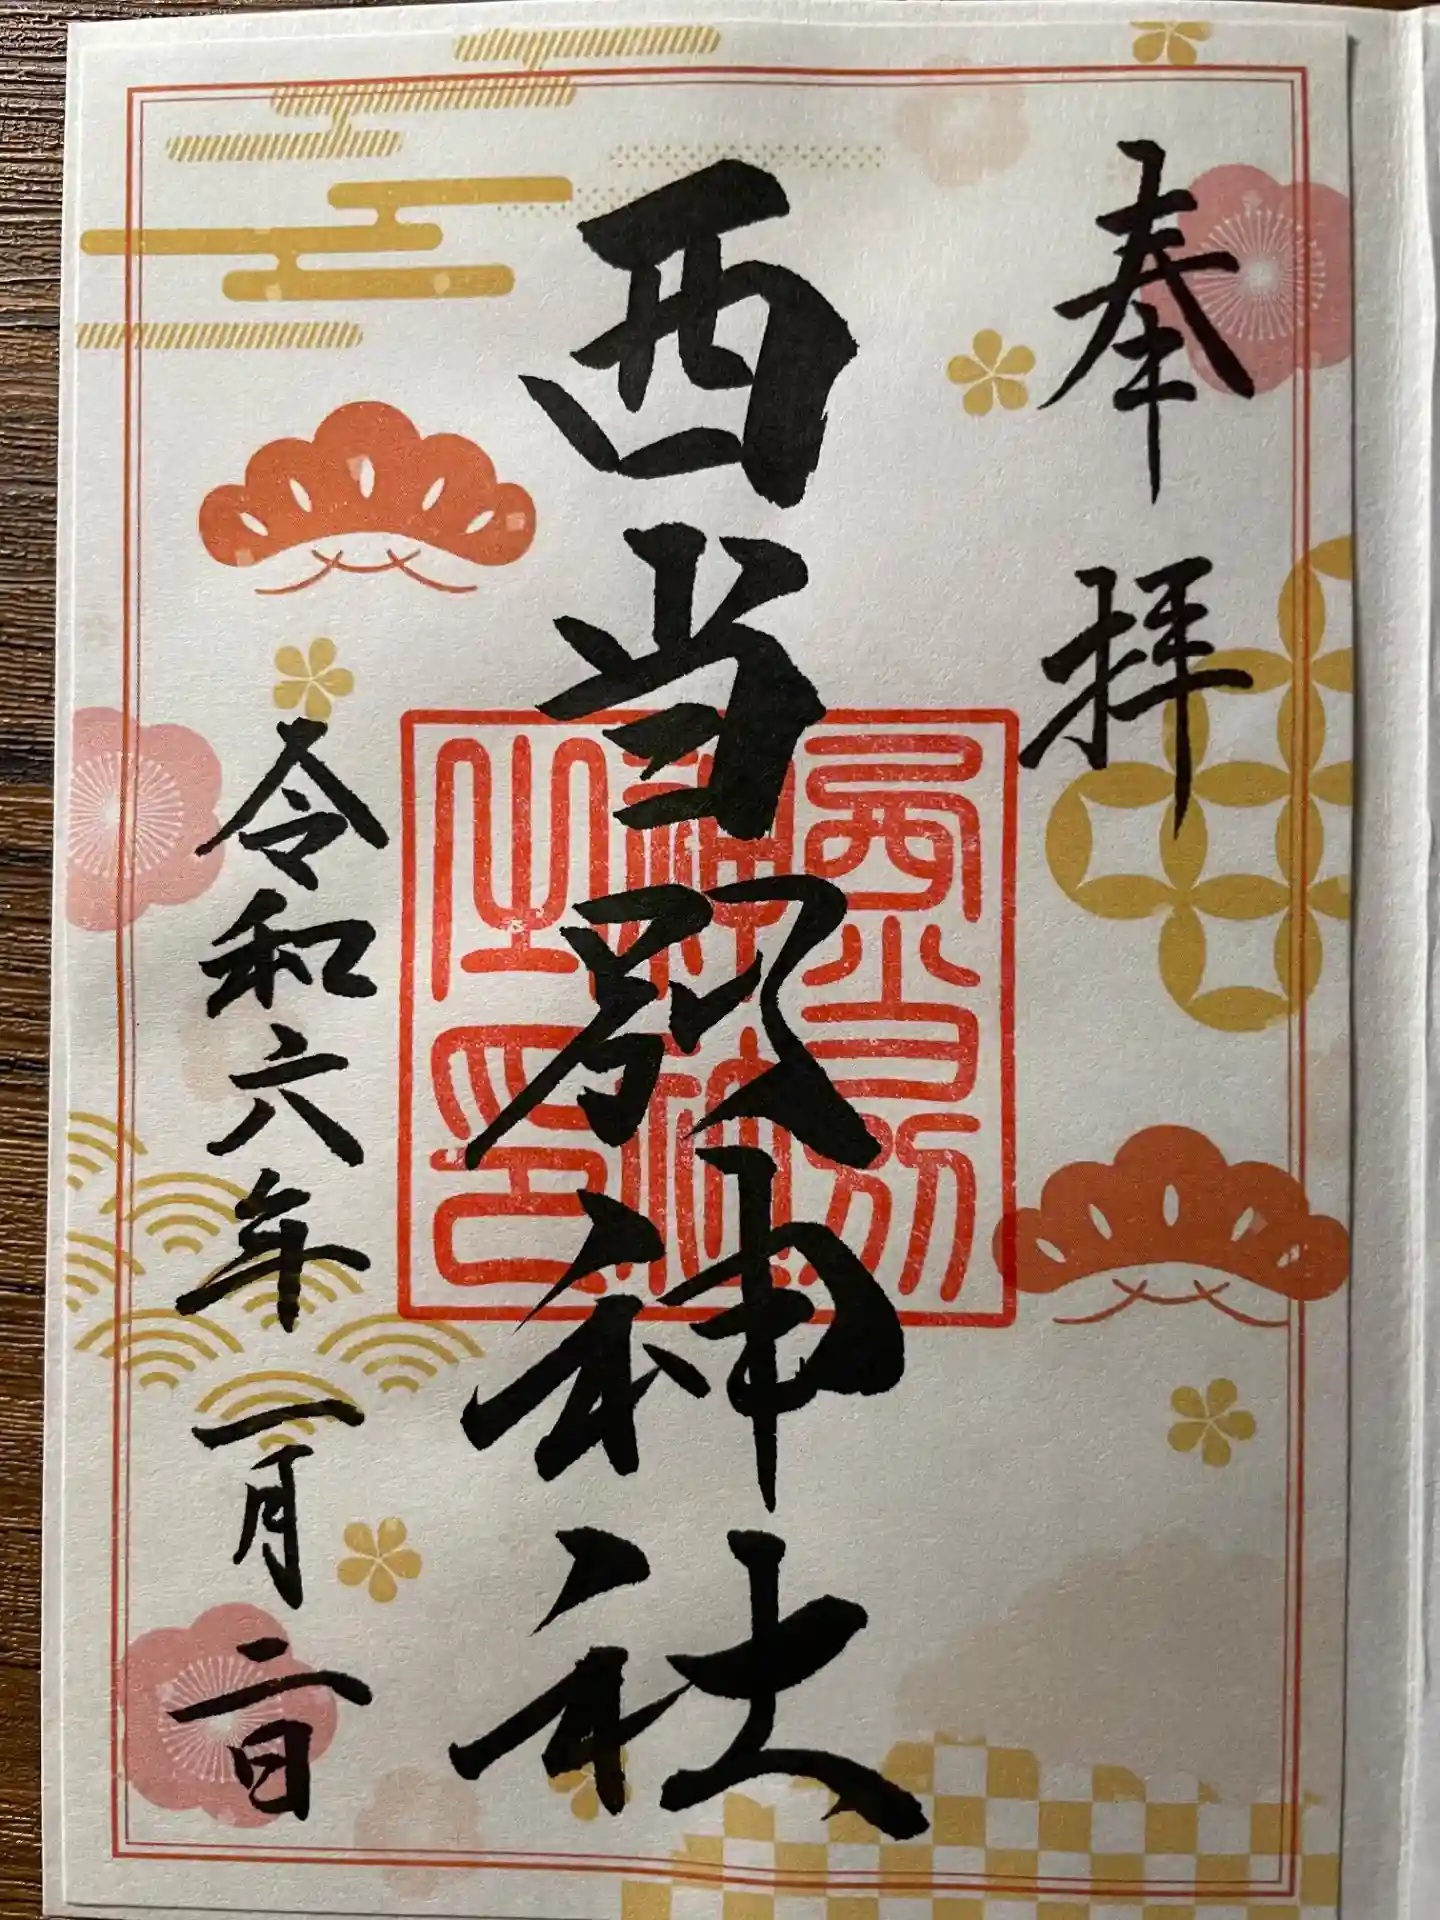 奉拝
西当別神社
西当別
神社
之印
令和六年一月二日